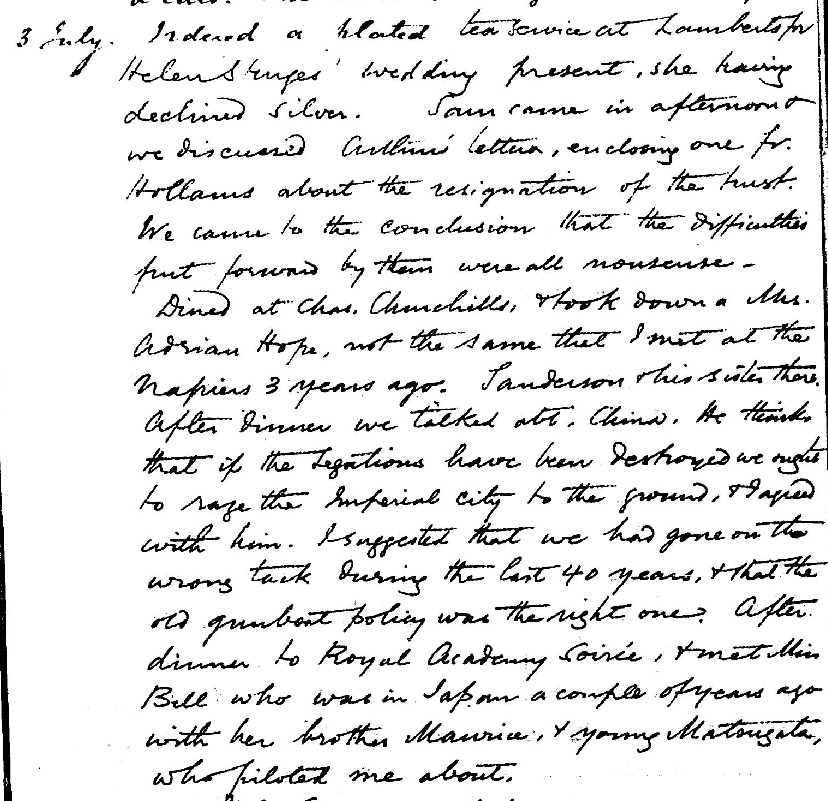 3 July. Ordered a plated tea service at Lamberts for
Helen Sturges' wedding present, she having
declined silver. Sam came in afternoon &
we discussed Arthur's letter, enclosing one fr.
Hollams about the resignation of the trust.
We came to the conclusion that the difficulties
put forward by them were all nonsense –
Dined at Chas. Churchills, & took down a Mrs.
Adrian Hope, not the same that I met at the
Napiers 3 years ago. Sanderson & his sister there.
After dinner we talked abt. China. He thinks
that if the Legations have been destroyed we ought
to raze the Imperial city to the ground, & I agreed
with him. I suggested that we had gone on the
wrong tack during the last 40 years, & that the
old gunboat policy was the right one. After
dinner to Royal Academy Soirée, & met Miss
Bell who was in Japan a couple of years ago
with her brother Maurice, & young Matsugata,
who piloted me about.